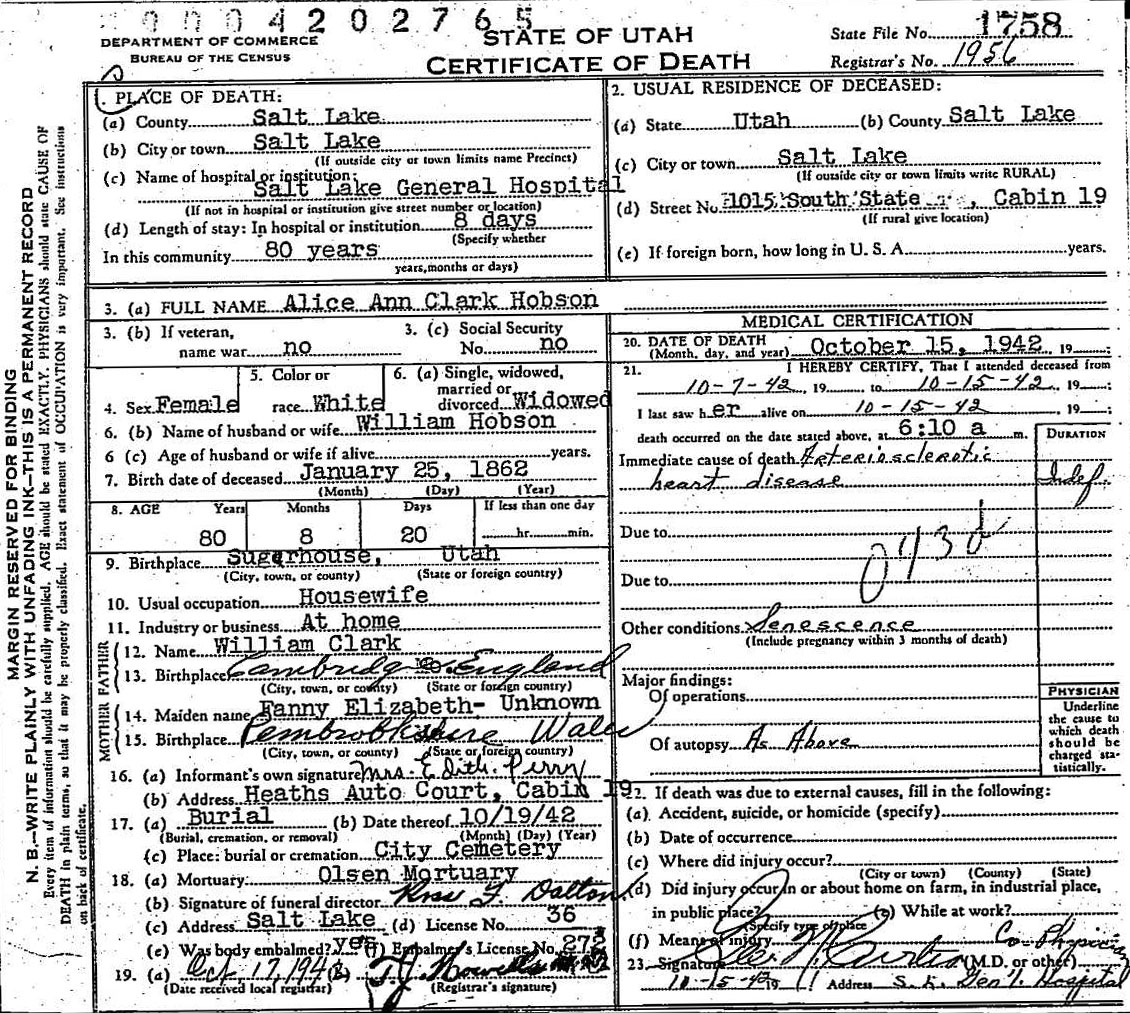 0004202765
DEPARTMENT OF COMMERCE
BUREAU OF THE CENSUS
STATE OF UTAH
CERTIFICATE OF DEATH
State File No. 1758
Registrar's No. 1956
MARGIN RESERVED FOR BINDING
N. B.—WRITE PLAINLY WITH UNFADING INK—THIS IS A PERMANENT RECORD
Every item of information should be carefully supplied. AGE should be stated EXACTLY. PHYSICIANS should state CAUSE OF
DEATH in plain terms, so that it may be properly classified. Exact statement of OCCUPATION is very important. See instructions
on back of certificate.
1. PLACE OF DEATH:
(a) County Salt Lake
(b) City or town Salt Lake
(If outside city or town limits name Precinct)
(c) Name of hospital or institution:
Salt Lake General Hospital
(If not in hospital or institution give street number or location)
(d) Length of stay: In hospital or institution 8 days
(Specify whether
In this community 80 years
years, months or days)
2. USUAL RESIDENCE OF DECEASED:
(a) State Utah (b) County Salt Lake
(c) City or town Salt Lake
(If outside city or town limits write RURAL)
(d) Street No. 1015 South State , Cabin 19
(If rural give location)
(e) If foreign born, how long in U. S. A. years.
3. (a) FULL NAME Alice Ann Clark Hobson
3. (b) If veteran,
name war no
3. (c) Social Security
No. no
4. Sex Female
5. Color or
race White
6. (a) Single, widowed,
married or
divorced Widowed
6. (b) Name of husband or wife William Hobson
6 (c) Age of husband or wife if alive years.
7. Birth date of deceased January 25, 1862
(Month) (Day) (Year)
8. AGE Years Months Days If less than one day
80 8 20 hr. min.
9. Birthplace Sugerhouse, Utah
(City, town, or county) (State or foreign country)
10. Usual occupation Housewife
11. Industry or business At home
FATHER
12. Name William Clark
13. Birthplace Cambridge England
(City, town, or county) (State or foreign country)
MOTHER
14. Maiden name Fanny Elizabeth- Unknown
15. Birthplace Pembrookshire Wales
(City, town, or county) (State or foreign country)
16. (a) Informant's own signature Mrs. Edith Perry
(b) Address Heaths Auto Court, Cabin 19
17. (a) Burial (b) Date thereof 10/19/42
(Burial, cremation, or removal) (Month) (Day) (Year)
(c) Place: burial or cremation City Cemetery
18. (a) Mortuary Olsen Mortuary
(b) Signature of funeral director F. Dalton
(c) Address Salt Lake (d) License No. 36
(e) Was body embalmed? yes (f) Embalmer's License No. 272
19. (a) Oct. 17, 1942 (b) T. J. Howells
(Date received local registrar) (Registrar's signature)
MEDICAL CERTIFICATION
20. DATE OF DEATH October 15, 1942, 19 ;
(Month, day, and year)
21. I HEREBY CERTIFY, That I attended deceased from
10-7-42, 19 to 10-15-42, 19 ;
I last saw her alive on 10-15-42, 19 ;
death occurred on the date stated above, at 6:10 a m.
DURATION
Immediate cause of death Arteriosclerotic
heart disease Indef.
Due to
Due to
Other conditions Senescence
(Include pregnancy within 3 months of death)
Major findings:
Of operations
Of autopsy As Above
PHYSICIAN
Underline
the cause to
which death
should be
charged sta-
tistically.
22. If death was due to external causes, fill in the following:
(a) Accident, suicide, or homicide (specify)
(b) Date of occurrence
(c) Where did injury occur?
(City or town) (County) (State)
(d) Did injury occur in or about home on farm, in industrial place,
in public place? (e) While at work?
(Specify type of place
(f) Means of injury Co-Physician
23. Signature Curtis (M.D. or other)
10-15-42 19 Address S. L. Gen'l. Hospital